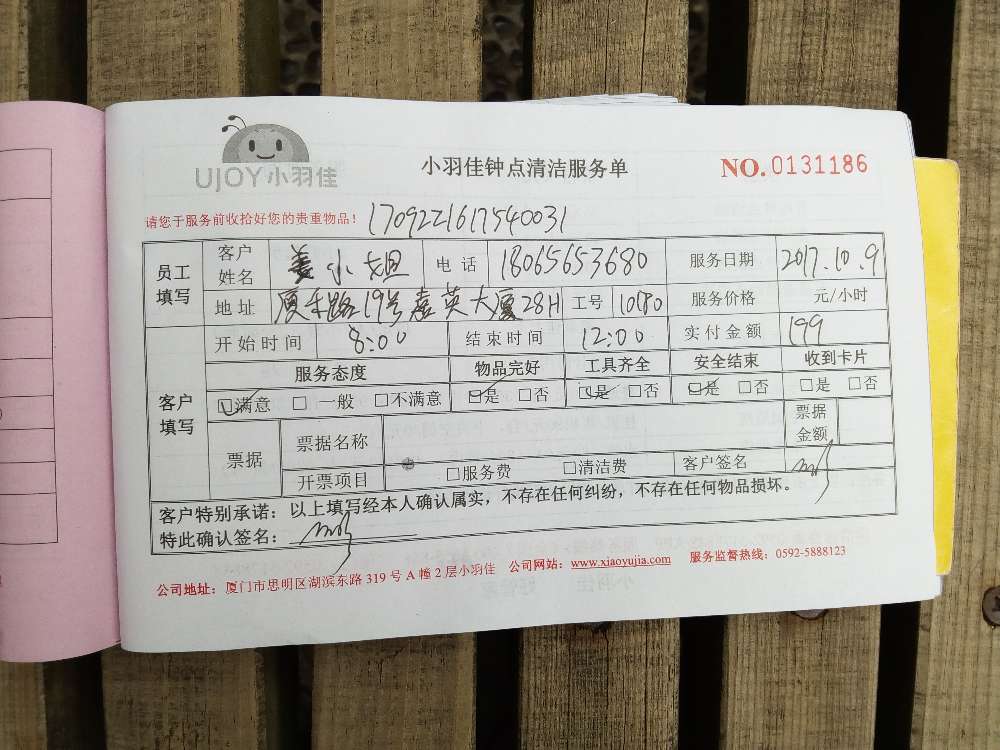 UJOY小羽佳
小羽佳钟点清洁服务单
NO.0131186
请您于服务前收拾好您的贵重物品！ 1709221617540031
员工填写 客户姓名 姜小姐 电话 18065653680 服务日期 2017.10.9
地址 厦禾路19号嘉英大厦28H 工号 10180 服务价格 元/小时
客户填写 开始时间 8:00 结束时间 12:00 实付金额 199
服务态度 物品完好 工具齐全 安全结束 收到卡片
☑满意 □一般 □不满意 ☑是 □否 ☑是 □否 ☑是 □否 □是 □否
票据 票据名称 票据金额
开票项目 □服务费 □清洁费 客户签名
客户特别承诺：以上填写经本人确认属实，不存在任何纠纷，不存在任何物品损坏。
特此确认签名：
公司地址：厦门市思明区湖滨东路 319 号 A 幢 2 层小羽佳 公司网站：www.xiaoyujia.com 服务监督热线：0592-5888123